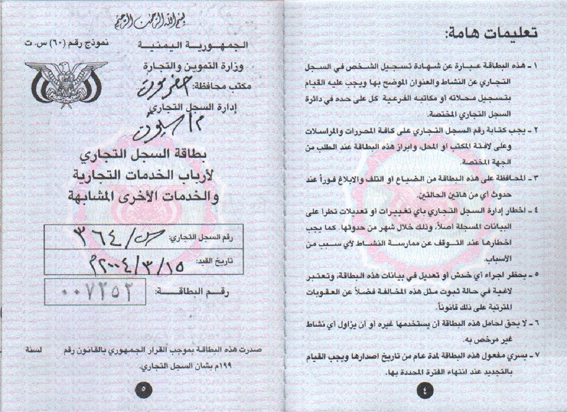 تعليمات هامة:
١ - هذه البطاقة عبارة عن شهادة تسجيل الشخص في السجل
التجاري عن النشاط والعنوان الموضح بها ويجب عليه القيام
بتسجيل محلاته أو مكاتبه الفرعية كل على حده في دائرة
السجل التجاري المختصة.
٢ - يجب كتابة رقم السجل التجاري على كافة المحررات والمراسلات
وعلى لافتة المكتب أو المحل، وابراز هذه البطاقة عند الطلب من
الجهة المختصة.
٣ - المحافظة على هذه البطاقة من الضياع أو التلف والابلاغ فوراً عند
حدوث أي من هاتين الحالتين.
٤ - اخطار إدارة السجل التجاري بأي تغييرات أو تعديلات تطرأ على
البيانات المسجلة أصلاً، وذلك خلال شهر من حدوثها، كما يجب
اخطارها عند التوقف عن ممارسة النشاط لأي سبب من
الأسباب.
٥ - يحظر اجراء أي خدش أو تعديل في بيانات هذه البطاقة، وتعتبر
لاغية في حالة ثبوت مثل هذه المخالفة فضلاً عن العقوبات
المترتبة على ذلك قانوناً.
٦ - لا يحق لحامل هذه البطاقة أن يستخدمها غيره أو أن يزاول أي نشاط
غير مرخص به.
٧ - يسري مفعول هذه البطاقة لمدة عام من تاريخ اصدارها ويجب القيام
بالتجديد عند انتهاء الفترة المحددة بها.
٤
بسم الله الرحمن الرحيم
الجمهورية اليمنية
نموذج رقم (٦٠) س.ت
وزارة التموين والتجارة
مكتب محافظة: حضرموت
إدارة السجل التجاري
م/سيئون
بطاقة السجل التجاري
لأرباب الخدمات التجارية
والخدمات الأخرى المشابهة
رقم السجل التجاري: س/٣٦٤
تاريخ القيد: ١٥/٣/٢٠٠٤م
رقم البطاقة: ٠٠٧٢٥٢
صدرت هذه البطاقة بموجب القرار الجمهوري بالقانون رقم لسنة
١٩٩م بشان السجل التجاري.
٥